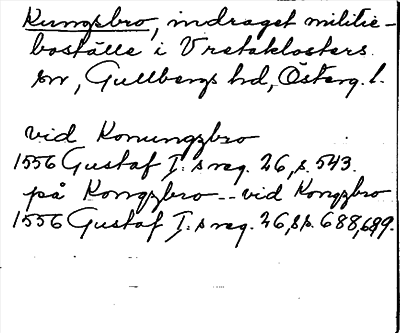 Kungsbro, indraget militie-
boställe i Vretaklosters
sn, Gullbergs hd, Österg. l.
vid Konungzbro
1556 Gustaf I:s reg. 26, s. 543.
på Kongzbro -- vid Kongzbro
1556 Gustaf I:s reg. 26, s. 688, 689.